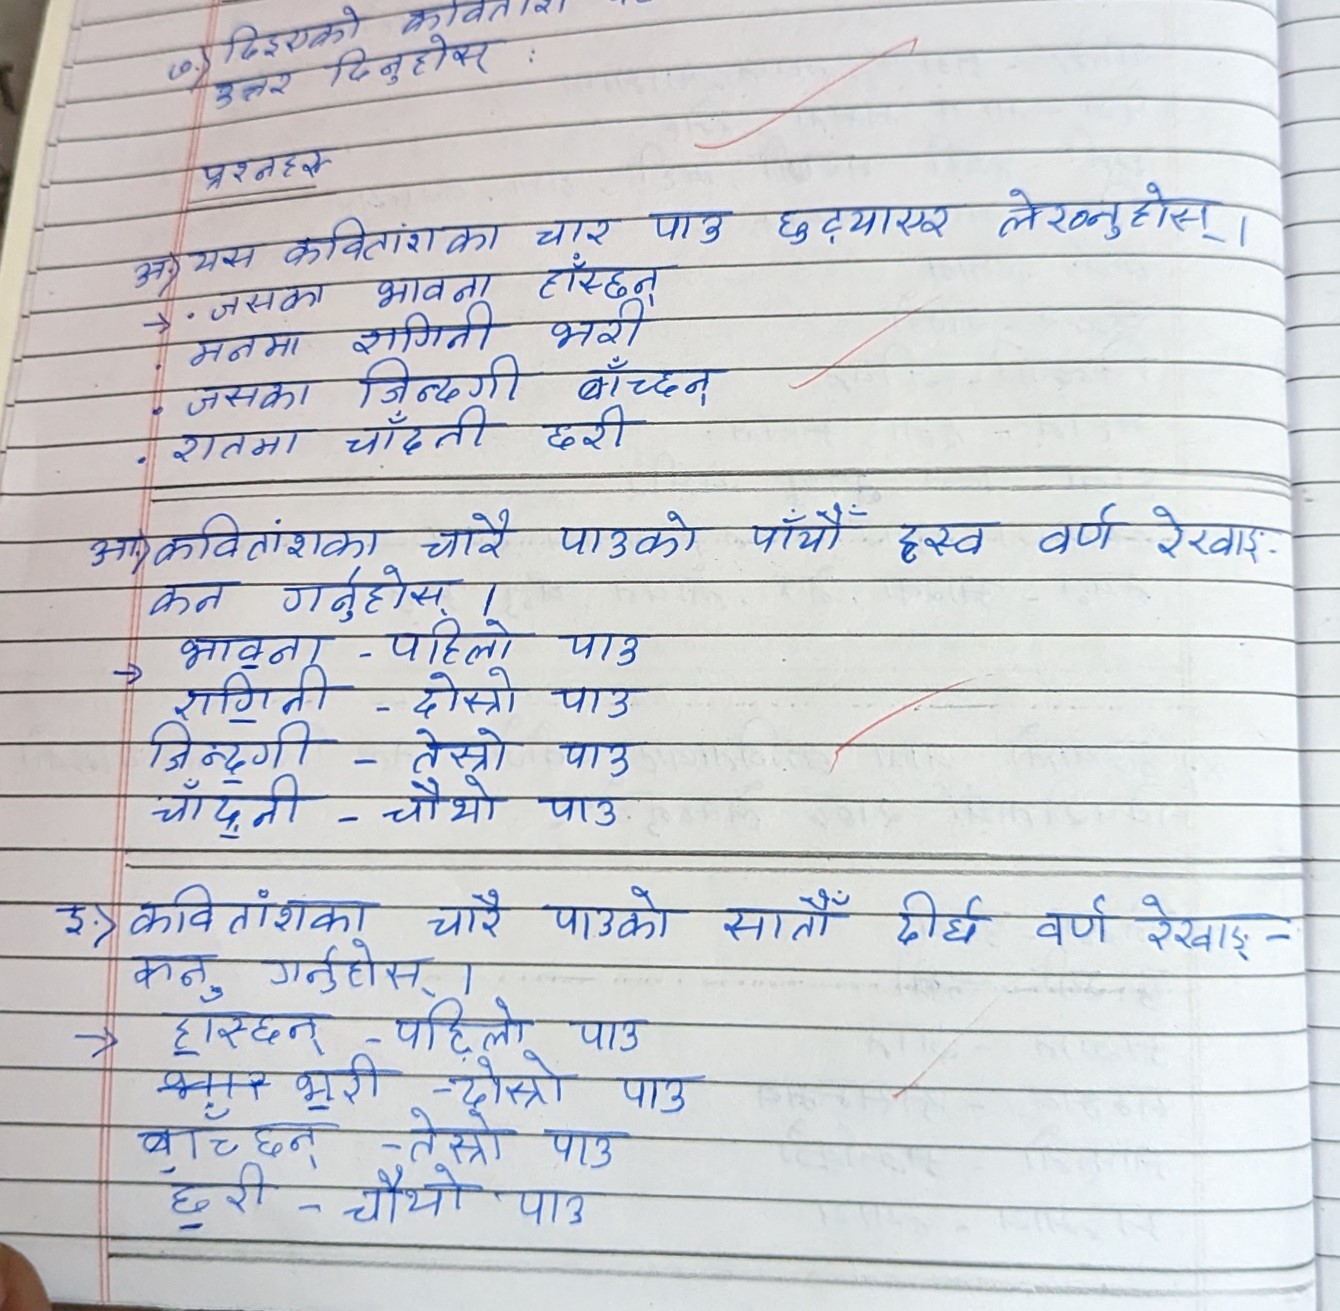 ७.) दिइएको कवितांश
उत्तर दिनुहोस् :
प्रश्नहरू
अ) यस कवितांशका चार पाउ छुट्याएर लेख्नुहोस् ।
→ . जसका भावना हाँस्छन्
. मनमा रागिनी भरी
. जसका जिन्दगी बाँच्दन्
. रातमा चाँदनी छरी
आ) कवितांशका चारै पाउको पाँचौँ ह्रस्व वर्ण रेखाङ-
कन गर्नुहोस् ।
→ भावना - पहिलो पाउ
रागिनी - दोस्रो पाउ
जिन्दगी - तेस्रो पाउ
चाँदनी - चौथो पाउ
इ.) कवितांशका चारै पाउको सातौँ दीर्घ वर्ण रेखाङ्-
कन गर्नुहोस् ।
→ हास्छन् - पहिलो पाउ
भरी - दोस्रो पाउ
बाँच्छन् - तेस्रो पाउ
छरी - चौथो पाउ